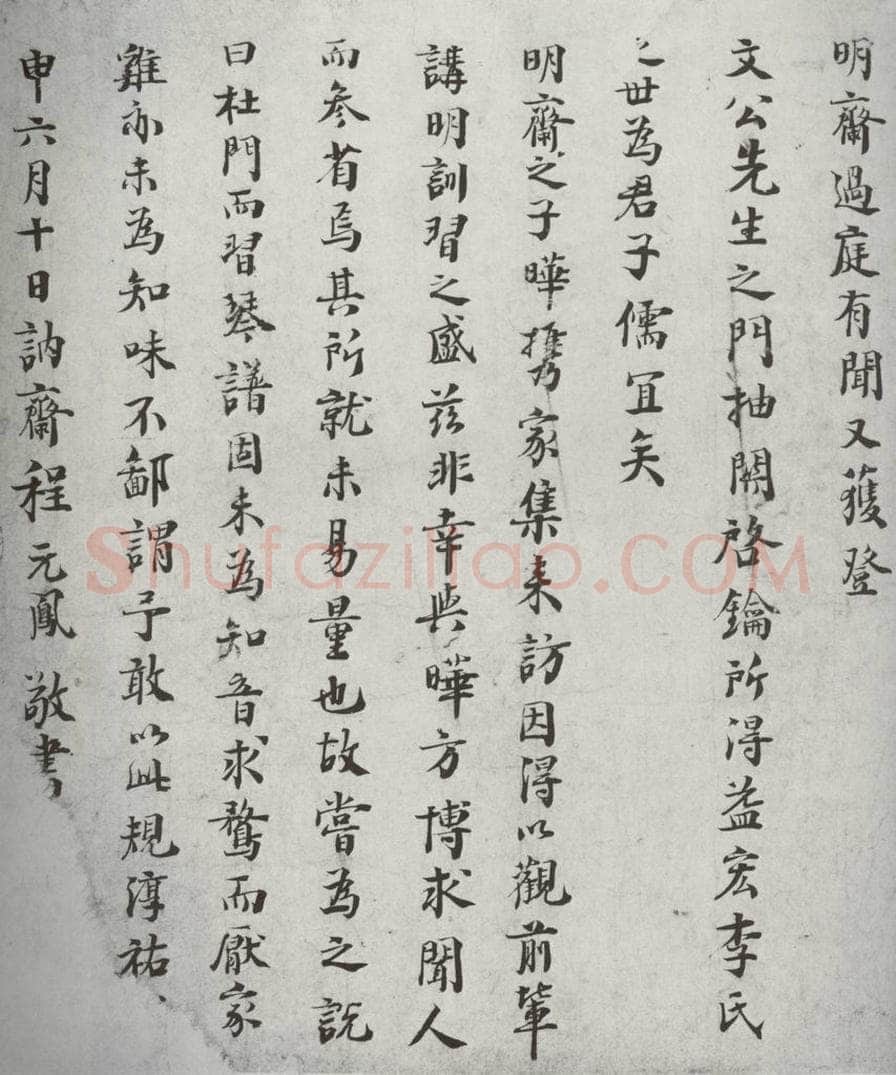 明齋過庭有聞又獲登
文公先生之門抽關啓鑰所得益宏李氏
之世為君子儒宜矣
明齋之子曄携家集来訪因得以觀前輩
講明訓習之盛兹非幸與曄方博求聞人
而叅省焉其所就未易量也故嘗為之説
曰杜門而習琴譜固未為知音求鶩而厭家
雞亦未為知味不鄙謂予敢以此規淳祐、
申六月十日訥齋程元鳳敬書
Shufaziliao.COM